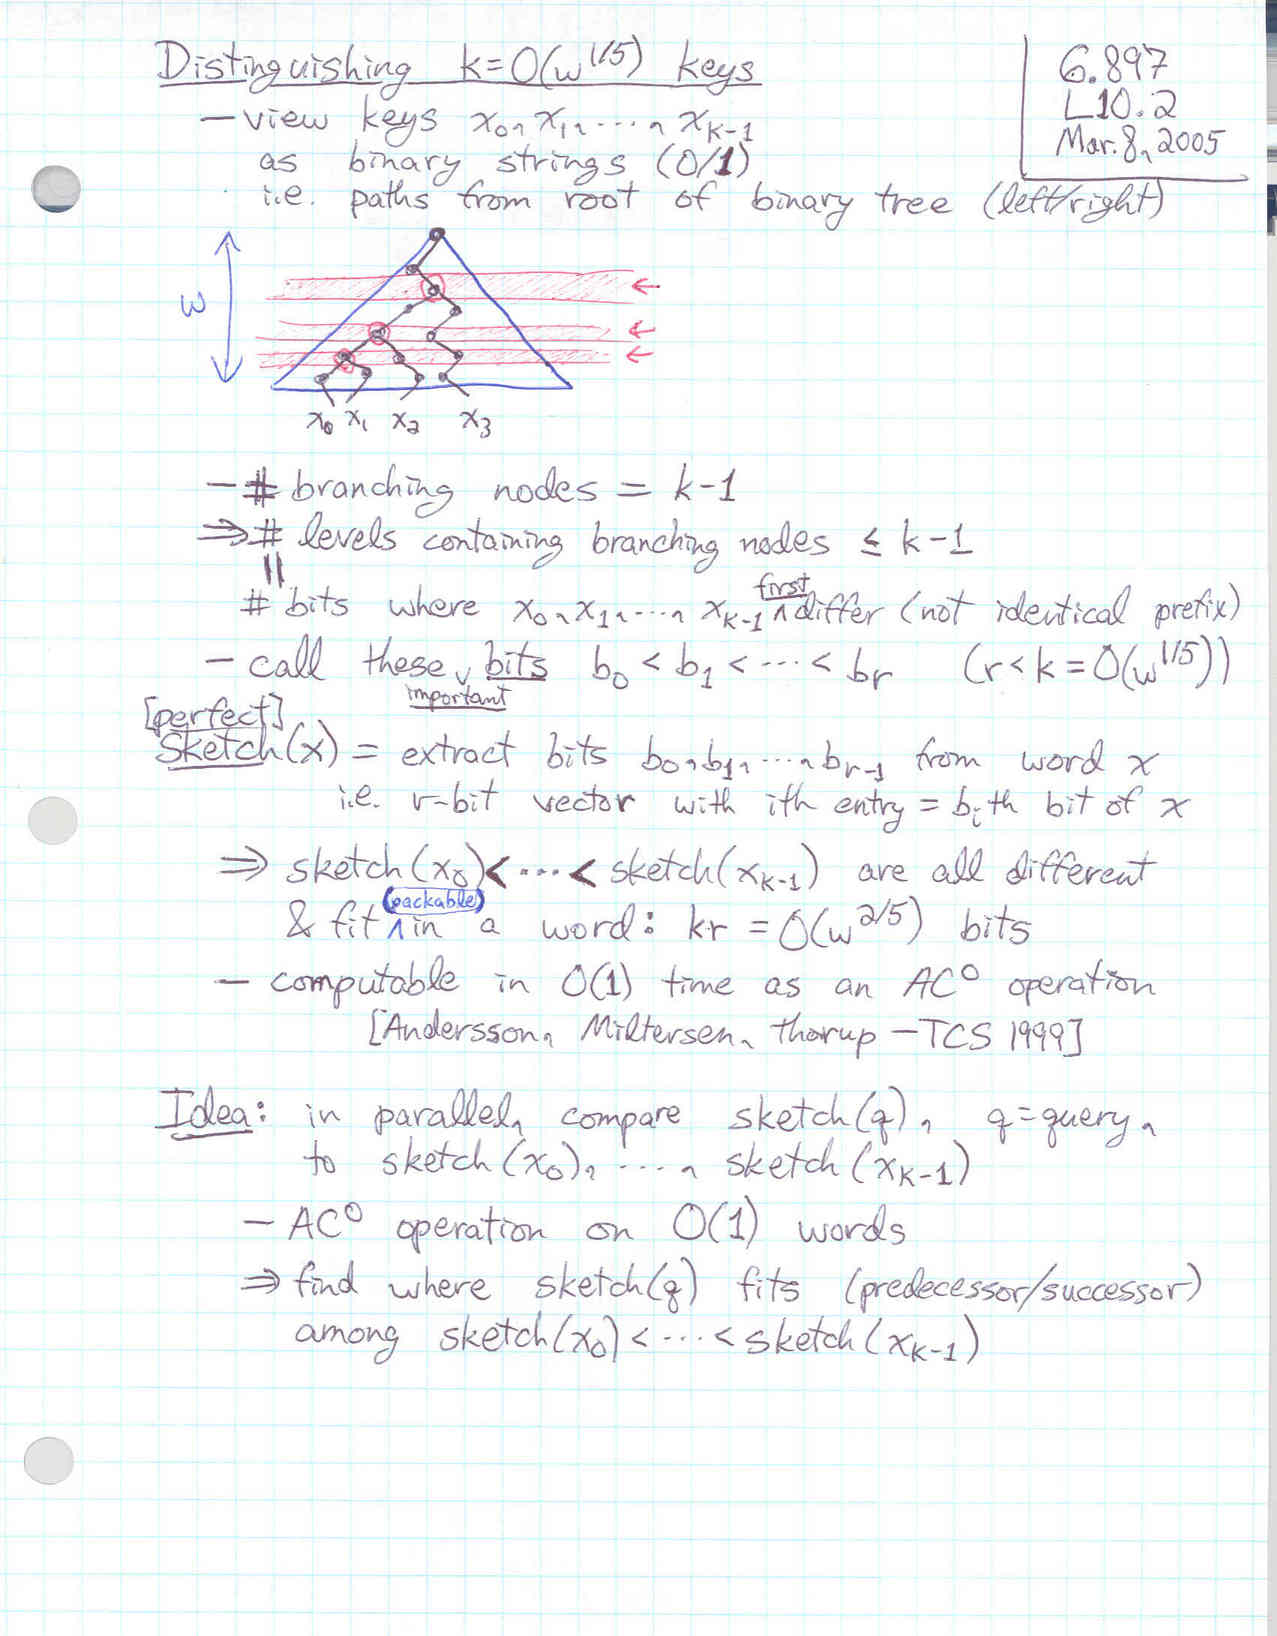 Distinguishing k=O(w^{1/5}) keys
6.897
L10.2
Mar. 8, 2005
– view keys x₀, x₁, ..., x_{k-1}
as binary strings (0/1)
i.e. paths from root of binary tree (left/right)
w
x₀ x₁ x₂ x₃
– # branching nodes = k-1
⇒ # levels containing branching nodes ≤ k-1
||
# bits where x₀, x₁, ..., x_{k-1} ^first differ (not identical prefix)
– call these important bits b₀ < b₁ < ... < b_r (r < k = O(w^{1/5}))
[perfect]
sketch(x) = extract bits b₀, b₁, ..., b_{r-1} from word x
i.e. r-bit vector with ith entry = b_i th bit of x
⇒ sketch(x₀) < ... < sketch(x_{k-1}) are all different
& fit ^(packable) in a word: kr = O(w^{2/5}) bits
– computable in O(1) time as an AC⁰ operation
[Andersson, Miltersen, Thorup – TCS 1999]
Idea: in parallel, compare sketch(q), q=query,
to sketch(x₀), ..., sketch(x_{k-1})
– AC⁰ operation on O(1) words
⇒ find where sketch(q) fits (predecessor/successor)
among sketch(x₀) < ... < sketch(x_{k-1})